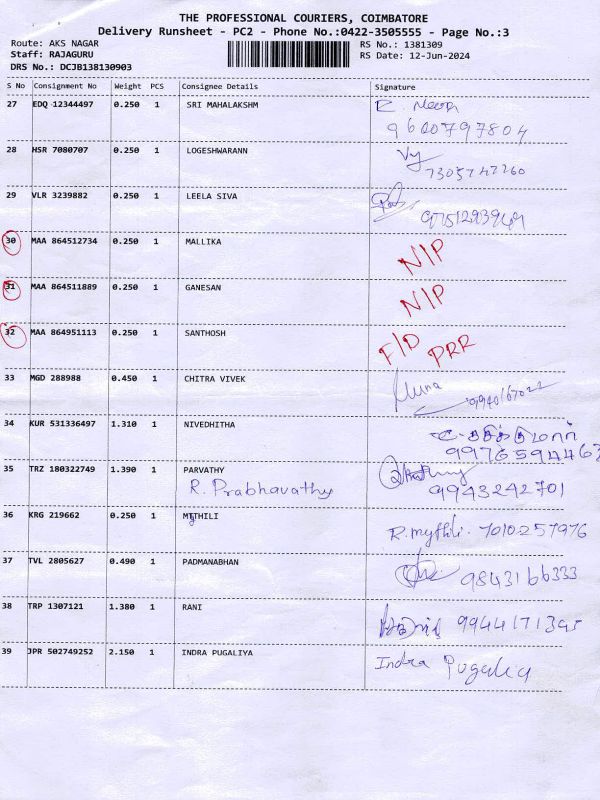 THE PROFESSIONAL COURIERS, COIMBATORE
Delivery Runsheet - PC2 - Phone No.:0422-3505555 - Page No.:3
Route: AKS NAGAR RS No.: 1381309
Staff: RAJAGURU RS Date: 12-Jun-2024
DRS No.: DCJB138130903
S No Consignment No Weight PCS Consignee Details Signature
27 EDQ 12344497 0.250 1 SRI MAHALAKSHM
9600797804
28 HSR 7080707 0.250 1 LOGESHWARANN
7305747260
29 VLR 3239882 0.250 1 LEELA SIVA
30 MAA 864512734 0.250 1 MALLIKA N/P
31 MAA 864511889 0.250 1 GANESAN N/P
32 MAA 864951113 0.250 1 SANTHOSH F/D PRR
33 MGD 288988 0.450 1 CHITRA VIVEK
34 KUR 531336497 1.310 1 NIVEDHITHA
9976594467
35 TRZ 180322749 1.390 1 PARVATHY
R. Prabhavathy 9943242701
36 KRG 219662 0.250 1 MYTHILI
R.mythili. 7010257976
37 TVL 2805627 0.490 1 PADMANABHAN
9843166333
38 TRP 1307121 1.380 1 RANI
9944171345
39 JPR 502749252 2.150 1 INDRA PUGALIYA
Indra Pugaliya